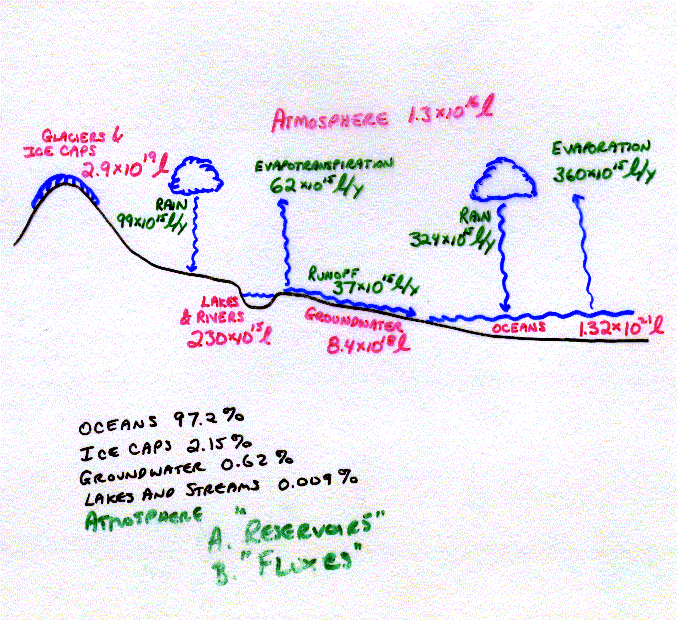 ATMOSPHERE 1.3x10¹⁶ l
GLACIERS &
ICE CAPS
2.9x10¹⁹ l
RAIN
99x10¹⁵ l/y
EVAPOTRANSPIRATION
62x10¹⁵ l/y
EVAPORATION
360x10¹⁵ l/y
RAIN
324x10¹⁵ l/y
RUNOFF
37x10¹⁵ l/y
LAKES
& RIVERS
230x10¹⁵ l
GROUNDWATER
8.4x10¹⁸ l
OCEANS 1.32x10²¹ l
OCEANS 97.2%
ICE CAPS 2.15%
GROUNDWATER 0.62%
LAKES AND STREAMS 0.009%
ATMOTPHERE
A. "RESERVOIRS"
B. "FLUXES"